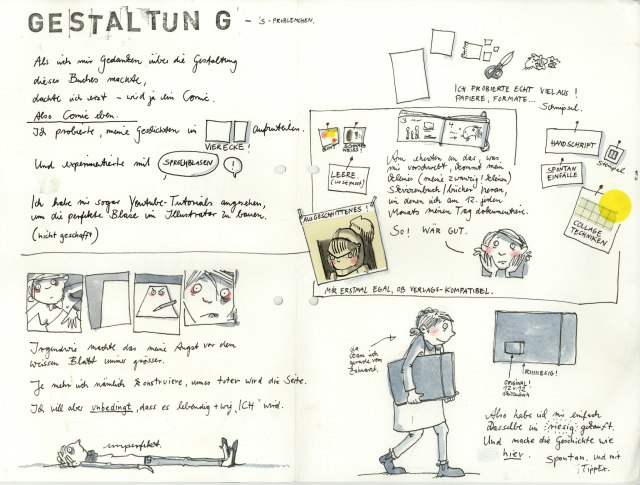 GESTALTUNG - 's-PROBLEMCHEN.
Als ich mir Gedanken über die Gestaltung
dieses Buches machte,
dachte ich erst - wird ja ein Comic.
Also Comic eben.
Ich probierte, meine Geschichten in
VIERECKE!
aufzuteilen.
Und experimentierte mit SPRECHBLASEN !
Ich habe mir sogar Youtube-Tutorials angesehen,
um die perfekte Blase in Illustrator zu bauen.
(nicht geschafft)
Irgendwie machte das meine Angst vor dem
weissen Blatt immer grösser.
Je mehr ich nämlich konstruiere, umso toter wird die Seite.
Ich will aber unbedingt, dass es lebendig + wie "ICH" wird.
unperfekt.
ICH PROBIERTE ECHT VIEL AUS!
PAPIERE, FORMATE...
Schnipsel.
BUNT
SCHWARZ
WEISS!
LEERE.
AUSGESCHNITTENES!
Am ehesten an das, was
mir vorschwebt, kommt mein
kleines (meine zwanzig! kleinen)
Skizzenbuch/bücher heran,
in denen ich am 12. jeden
Monats meinen Tag dokumentiere.
So! WÄR GUT.
HANDSCHRIFT
Stempel
SPONTAN
EINFÄLLE
COLLAGE
TECHNIKEN
MIR ERSTMAL EGAL, OB VERLAGS-KOMPATIBEL.
da
kam ich
gerade vom
Zahnarzt.
ORIGINAL!
12 x 12
Skizzenbuch
RIIIIIESIG!
Also habe ich mir einfach
dasselbe in riesig gekauft.
Und mache die Geschichte wie
hier. Spontan. Und mit
TippEx.